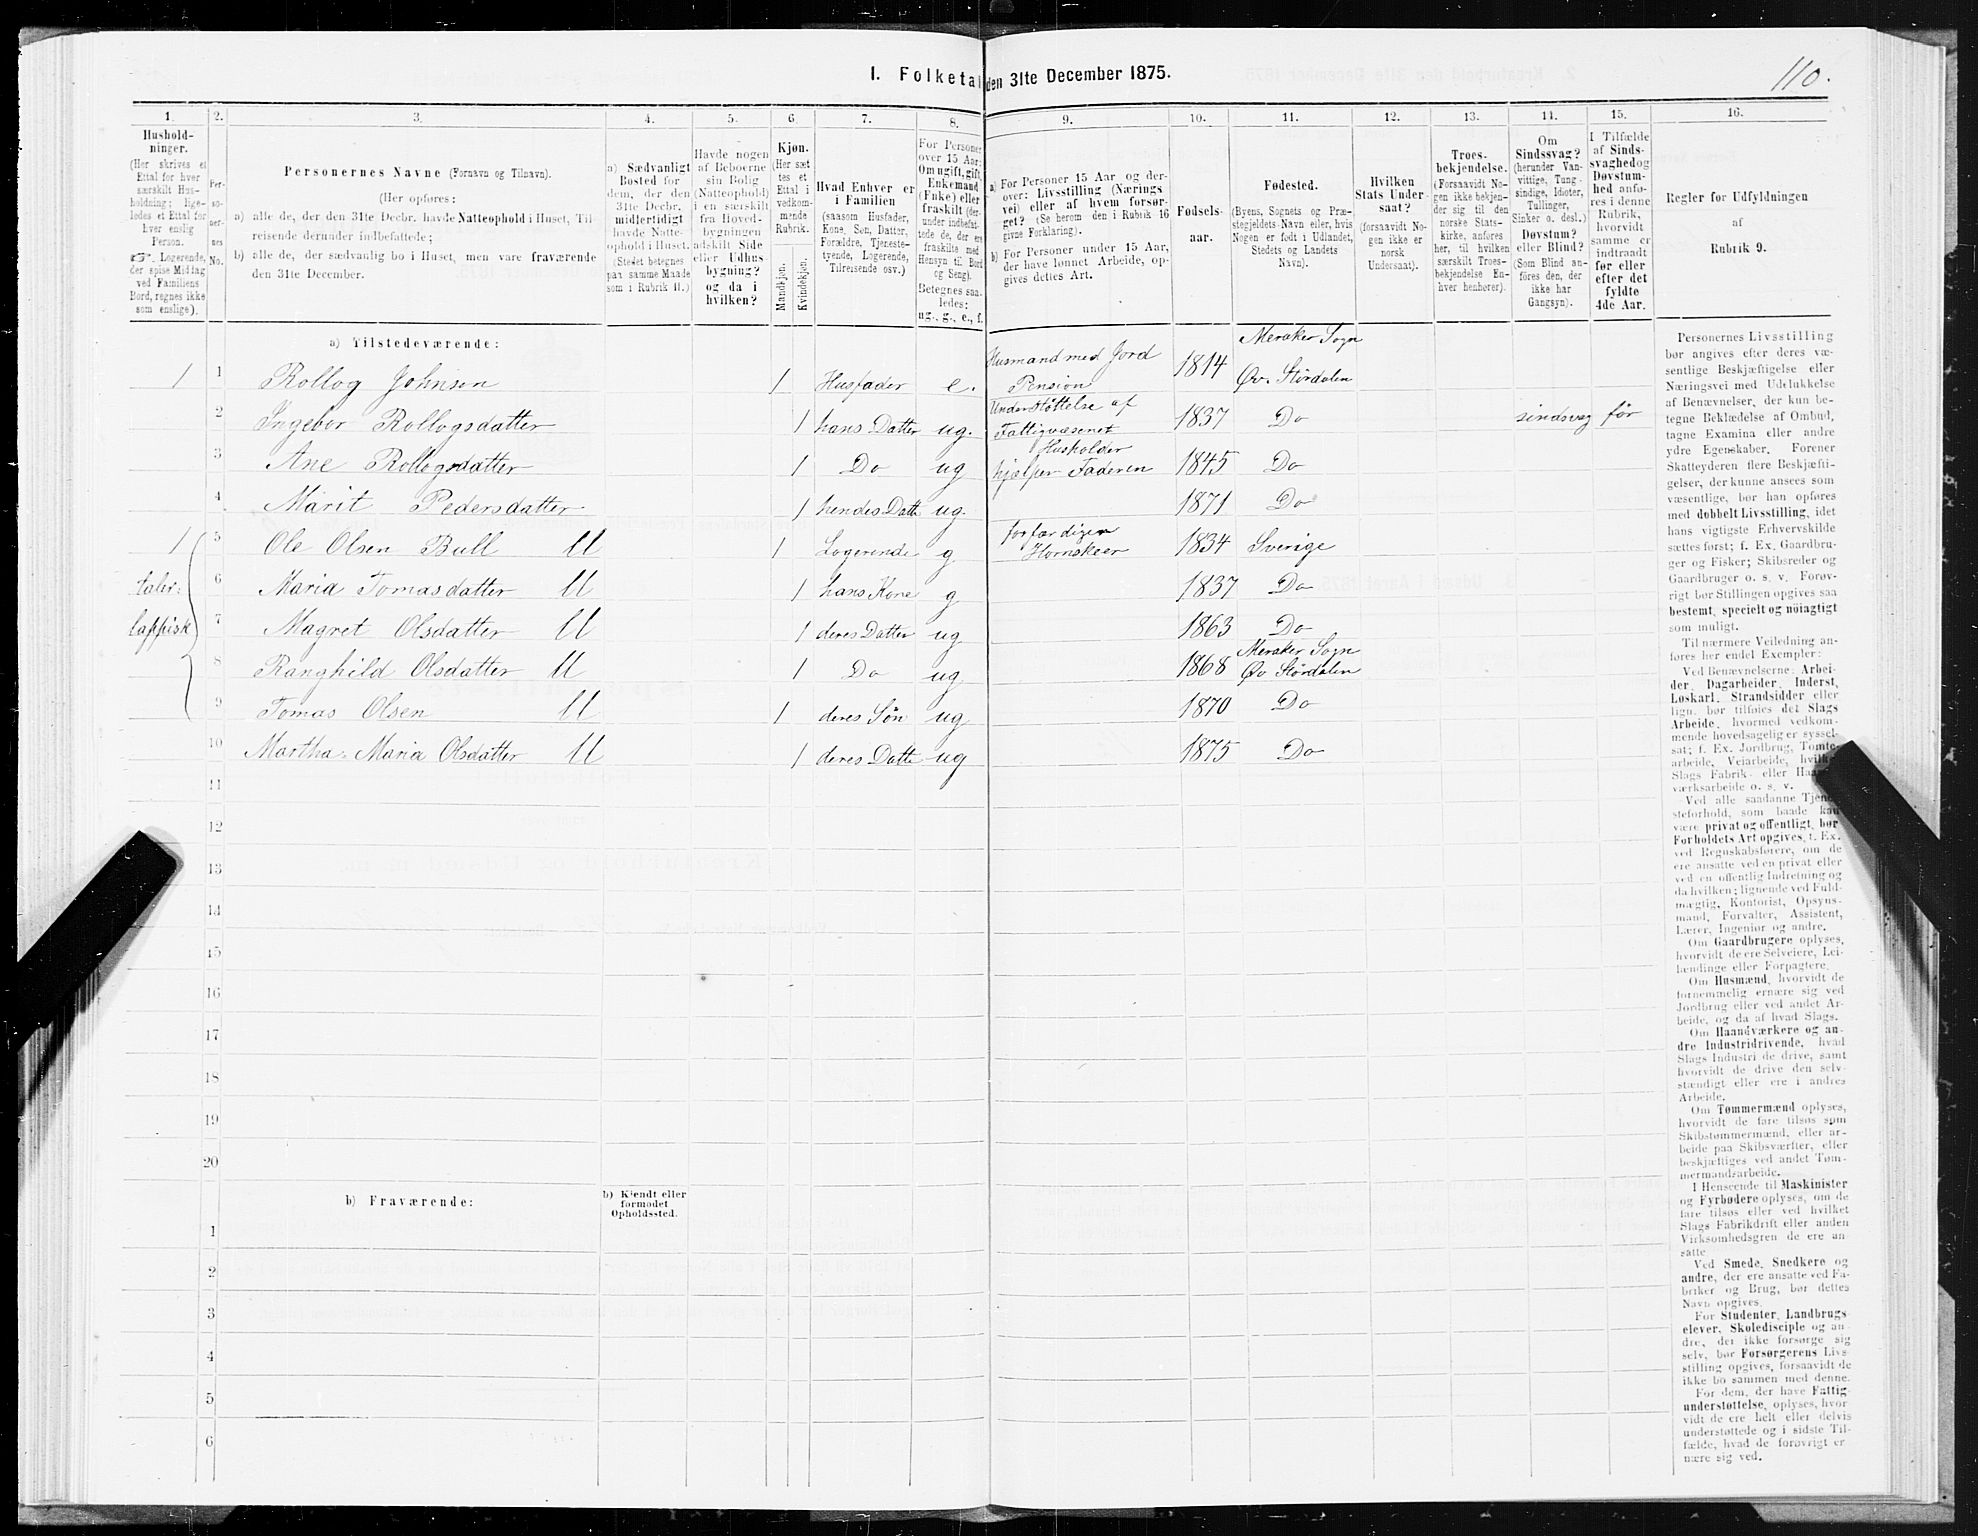 I. Folketal den 31te December 1875.
110.
1. 2. 3. 4. 5. 6. 7. 8. 9. 10. 11. 12. 13. 14. 15. 16.
Hushold-
ninger.
(Her skrives et
Ettal for hver
særskilt Hus-
holdning; lige-
ledes et Ettal for
hver enslig
Person.
☞. Logerende,
der spise Middag
ved Familiens
Bord, regnes ikke
som enslige).
Per-
so-
ner-
nes
No.
Personernes Navne (Fornavn og Tilnavn).
(Her opføres:
a) alle de, der den 31te Decbr. havde Natteophold i Huset, Til-
reisende derunder indbefattede;
b) alle de, der sædvanlig bo i Huset, men vare fraværende
den 31te December.
a) Sædvanligt
Bosted for
dem, der den
31te Decbr.
midlertidigt
havde Natte-
ophold i Huset.
(Stedet betegnes
paa samme Maade
som i Rubrik 11.)
Havde nogen
af Beboerne
sin Bolig
(Natteophold)
i en særskilt
fra Hoved-
bygningen
adskilt Side
eller Udhus-
bygning?
og da i
hvilken?
Kjøn.
(Her sæt-
tes et
Ettal i
vedkom-
mende
Rubrik.
Mandkjøn.
Kvindekjøn.
Hvad Enhver er
i Familien
(saasom Husfader,
Kone, Søn, Datter,
Forældre, Tjeneste-
tyende, Logerende,
Tilreisende osv.)
For Personer
over 15 Aar:
Om ugift, gift,
Enkemand
(Enke) eller
fraskilt (der-
under indbefat-
tede de, der ere
fraskilte med
Hensyn til Bord
og Seng).
Betegnes saa-
ledes:
ug., g., e., f.
a) For Personer 15 Aar og der-
over: Livsstilling (Nærings-
vei) eller af hvem forsør-
get? (Se herom den i Rubrik 16
givne Forklaring).
b) For Personer under 15 Aar,
der have lønnet Arbeide, op-
gives dettes Art.
Fødsels-
aar.
Fødested.
(Byens, Sognets og Præ-
stegjeldets Navn eller, hvis
Nogen er født i Udlandet,
Stedets og Landets
Navn).
Hvilken
Stats Under-
saat?
(forsaavidt No-
gen ikke er
norsk
Undersaat).
Troes-
bekjendelse.
(Forsaavidt No-
gen ikke bekjen-
der sig til den
norske Stats-
kirke, anføres
her, til hvilken
særskilt Troes-
bekjendelse En-
hver henhører).
Om
Sindssvag?
(herunder Van-
vittige, Tung-
sindige, Idioter,
Tullinger,
Sinker o. desl.)
Døvstum?
eller Blind?
(Som Blind an-
føres den, der
ikke har
Gangsyn).
I Tilfælde
af Sinds-
svaghed og
Døvstum-
hed anfø-
res i denne
Rubrik,
hvorvidt
samme er
indtraadt
før eller
efter det
fyldte
4de Aar.
Regler for Udfyldningen
af
Rubrik 9.
a) Tilstedeværende:
1 1 Rollog Johnsen 1 Husfader e. Husmand med Jord Pension 1814 Meraker Sogn Øv. Størdalen
2 Ingebor Rollogsdatter 1 hans Datter ug. Understøttelse af Fattigvæsenet 1837 Do sindsvag før
3 Ane Rollogsdatter 1 Do ug Husholder hjælper Faderen 1845 Do
4 Marit Pedersdatter 1 hendes Datt ug. 1871 Do
1 5 Ole Olsen Bull U 1 Logerende g forfærdigen Hornskeer 1834 Sverige
6 Maria Tomasdatter U 1 hans Kone g 1837 Do
taler:
lappisk
7 Magret Olsdatter U 1 deres Datter ug 1863 Do
8 Ranghild Olsdatter U 1 Do ug 1868 Meraker Sogn Øv Størdalen
9 Tomas Olsen U 1 deres Søn ug 1870 Do
10 Martha-Maria Olsdatter U 1 deres Datte ug 1875 Do
11
12
13
14
15
16
17
18
19
20
b) Fraværende:
b) Kjendt eller
formodet
Opholdssted.
1
2
3
4
5
6
Personernes Livsstilling
bør angives efter deres væ-
sentlige Beskjæftigelse eller
Næringsvei med Udelukkelse
af Benævnelser, der kun be-
tegne Beklædelse af Ombud,
tagne Examina eller andre
ydre Egenskaber. Forener
Skatteyderen flere Beskjæfti-
gelser, der kunne ansees som
væsentlige, bør han opføres
med dobbelt Livsstilling, idet
hans vigtigste Erhvervskilde
sættes først; f. Ex. Gaardbru-
ger og Fisker; Skibsreder og
Gaardbruger o. s. v. Forøv-
rigt bør Stillingen opgives saa
bestemt, specielt og nøiagtigt
som muligt.
Til nærmere Veiledning an-
føres her endel Exempler:
Ved Benævnelserne: Arbei-
der, Dagarbeider, Inderst,
Løskarl, Strandsidder eller
lign. bør tilføies det Slags
Arbeide, hvormed vedkom-
mende hovedsagelig er syssel-
sat; f. Ex. Jordbrug, Tomte-
arbeide, Veiarbeide, hvilket
Slags Fabrik- eller Haand-
værksarbeide o. s. v.
Ved alle saadanne Tjene-
steforhold, som baade kan
være privat og offentligt, bør
Forholdets Art opgives, t. Ex.
ved Regnskabsførere, om de
ere ansatte ved en privat eller
ved en offentlig Indretning og
da hvilken; lignende ved Fuld-
mægtig, Kontorist, Opsyns-
mand, Forvalter, Assistent,
Lærer, Ingeniør og andre.
Om Gaardbrugere oplyses,
hvorvidt de ere Selveiere, Lei-
lændinge eller Forpagtere.
Om Husmænd, hvorvidt de
fornemmelig ernære sig ved
Jordbrug eller ved andet Ar-
beide, og da af hvad Slags.
Om Haandværkere og an-
dre Industridrivende, hvad
Slags Industri de drive, samt
hvorvidt de drive den selv-
stændigt eller ere i andres
Arbeide.
Om Tømmermænd oplyses,
hvorvidt de fare tilsøs som
Skibstømmermænd, eller ar-
beide paa Skibsværfter, eller
beskjæftiges ved andet Tøm-
mermandsarbeide.
I Henseende til Maskinister
og Fyrbødere oplyses, om de
fare tilsøs eller ved hvilket
Slags Fabrikdrift eller anden
Virksomhedsgren de ere an-
satte.
Ved Smede, Snedkere og
andre, der ere ansatte ved Fa-
briker og Brug, bør dettes
Navn opgives.
For Studenter, Landbrugs-
elever, Skoledisciple og an-
dre, der ikke forsørge sig
selv, bør Forsørgerens Livs-
stilling opgives, forsaavidt de
ikke bo sammen med denne.
For dem, der have Fattig-
understøttelse, oplyses, hvor-
vidt de ere helt eller delvis
understøttede og i sidste Til-
fælde, hvad de forøvrigt er
nære sig ved.